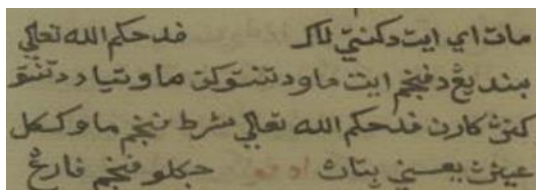 مات اي ايت دكنتي لاكي فد حكم الله تعالى
بند يڠ دفنجم ايت ماو دتنتوكن ماو تياد دتنتو
كنڽ كارن فد حكم الله تعالى شرط فنجم ماو ككل
عينڽ يعني بتاڽ جكلو فنجم فارڠ